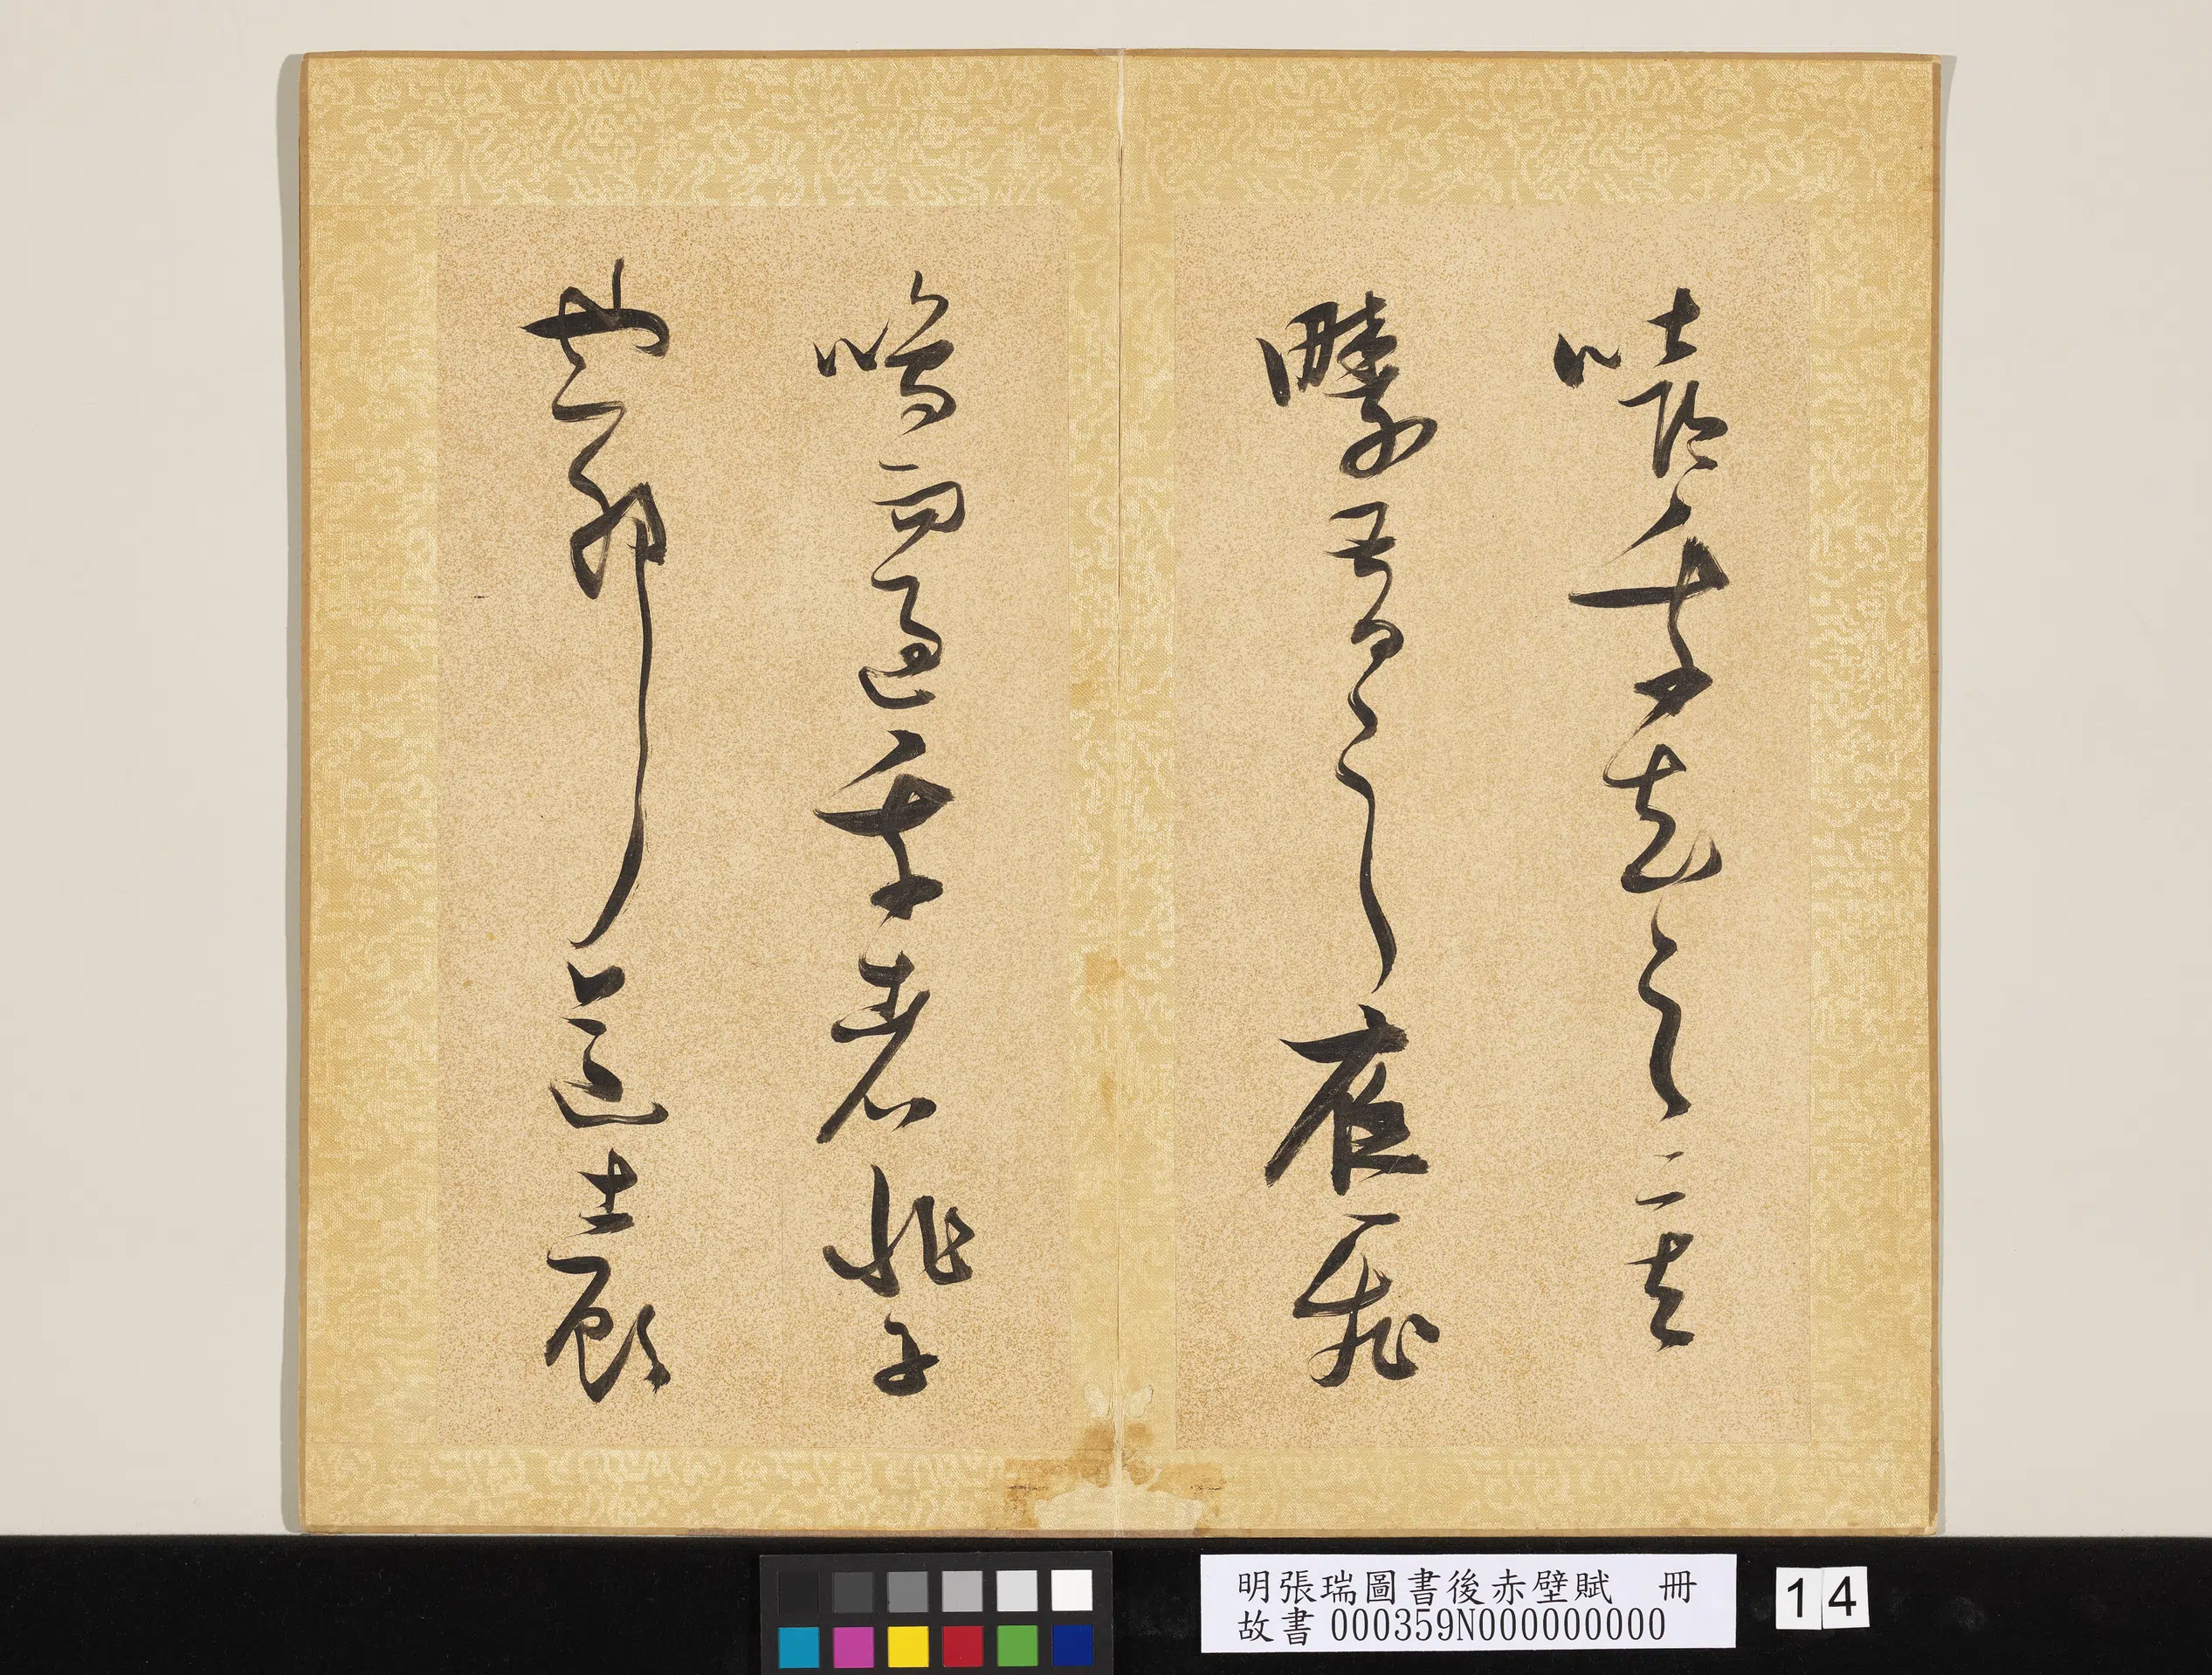 嘻我知之矣
疇昔之夜飛
鳴而過我者非子
也耶道士顧
明張瑞圖書後赤壁賦 冊
故書 000359N000000000
14